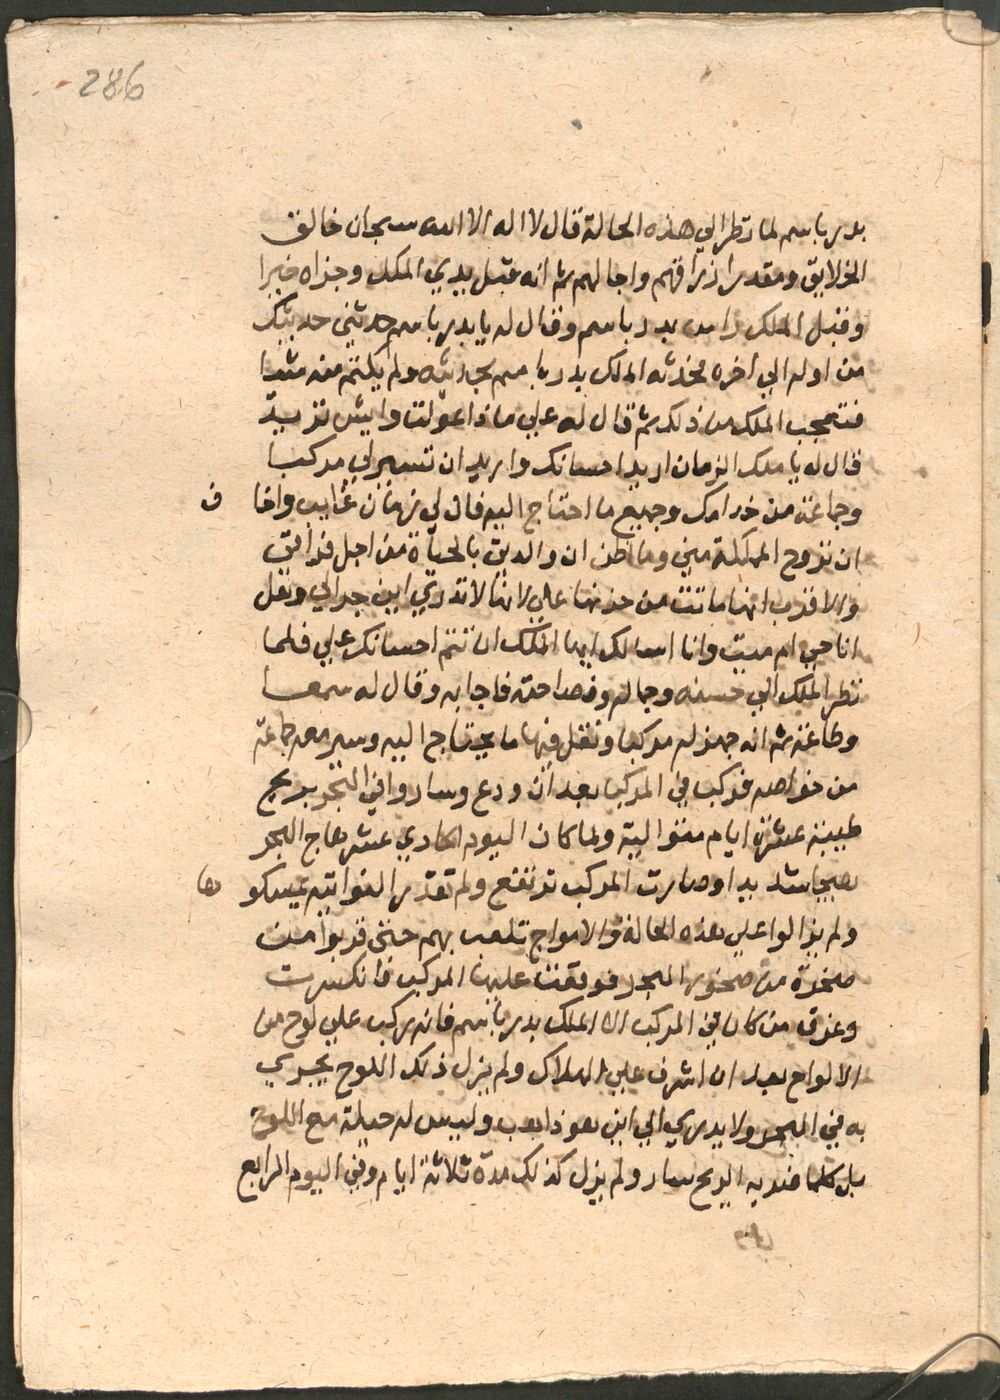 286
بدر باسم لما نظر الي هذه الحالة قال لا اله الا الله سبحان خالق
الخلايق ومقدر ارزاقهم واجالهم ثم انه قبل يدي الملك وجزاه خيرا
وقبل الملك راس بدر باسم وقال له يا بدر باسم حدثني حديثك
من اوله الي اخره فحدثه الملك بدر باسم بحديثه ولم يكتم منه شيا
فتعجب الملك من ذلك ثم قال له علي ماذا عولت وايش تريد
قال له يا ملك الزمان اريد احسانك واريد ان تسير لي مركبا
وجماعة من خدامك وجميع ما احتاج اليه فان لي زمان غايب واخا ف
ان تروح المملكة مني وما اظن ان والدتي بالحياة من اجل فراقي
والاقرب انها ماتت من حزنها علي لانها لا تدري اين جرا لي وهل
انا حي ام ميت وانا اسالك ايها الملك ان تتم احسانك علي فلما
نظر الملك الي حسنه وجماله وفصاحته فاجابه وقال له سمعا
وطاعة ثم انه جهز له مركبا ونقل فيها ما يحتاج اليه وسير معه جماعة
من خواصه فركب في المركب بعد ان ودع وساروا في البحر بريح
طيبة عشرة ايام متوالية ولما كان اليوم الحادي عشر هاج البحر
هيجا شديدا وصارت المركب ترتفع ولم تقدر النواتيه يمسكو ها
ولم يزالوا علي هذه الحالة والامواج تلعب بهم حتي قربوا من
صخرة من صخور البحر فوقعت عليها المركب فانكسرت
وغرق من كان في المركب الا الملك بدر باسم فانه ركب علي لوح من
الالواح بعد ان اشرف علي الهلاك ولم يزل ذلك اللوح يجري
به في البحر ولا يدري الي اين هو ذاهب وليس له حيلة مع اللوح
بل كلما ضربه الريح سار ولم يزل كذلك مدة ثلاثة ايام وفي اليوم الرابع